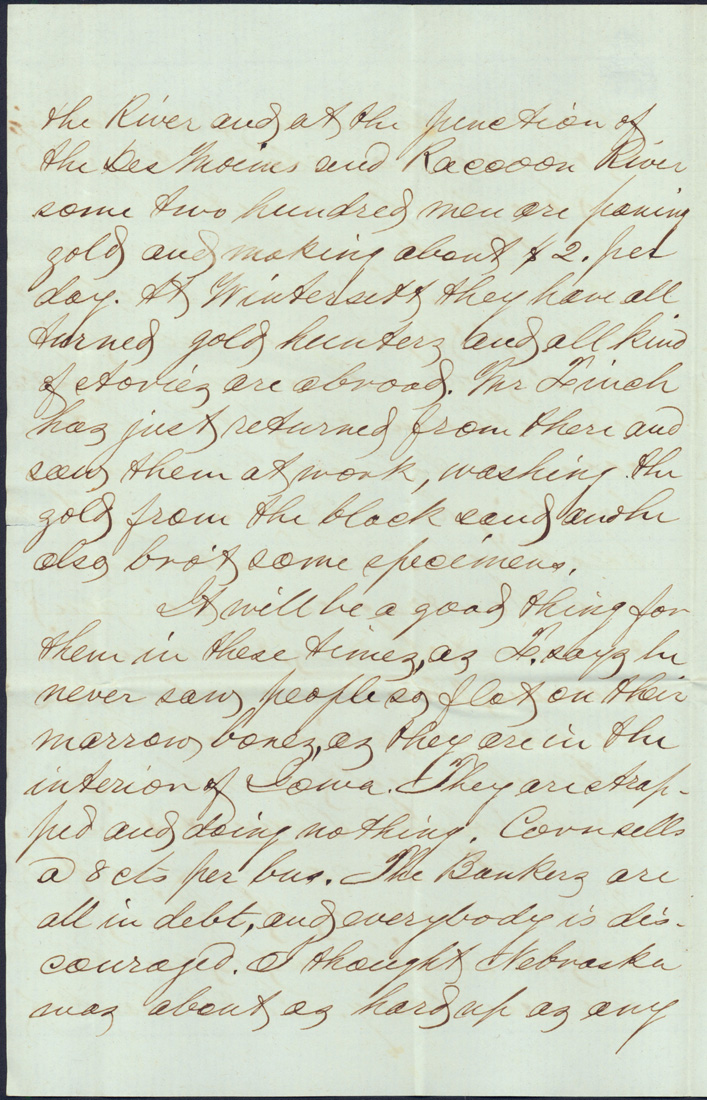 the River and at the junction of
the Des Moines and Racooon River
some two hundred men are paning
gold and making about $2. per
day. At Wintersett they have all
turned gold hunters and all kind
of stories are abroad. Mr Finch
has just returned from there and
saw them at work, washing the
gold from the black sand and he
also bro't some specimens.
It will be a good thing for
them in these times, as F. says he
never saw people so flat on their
marrow bones, as they are in the
interior of Iowa. They are strap-
ped and doing nothing. Corn sells
@ 8 cts per bus. The Bankers are
all in debt, and everybody is dis-
couraged. I thought Nebraska
was about as hard up as any